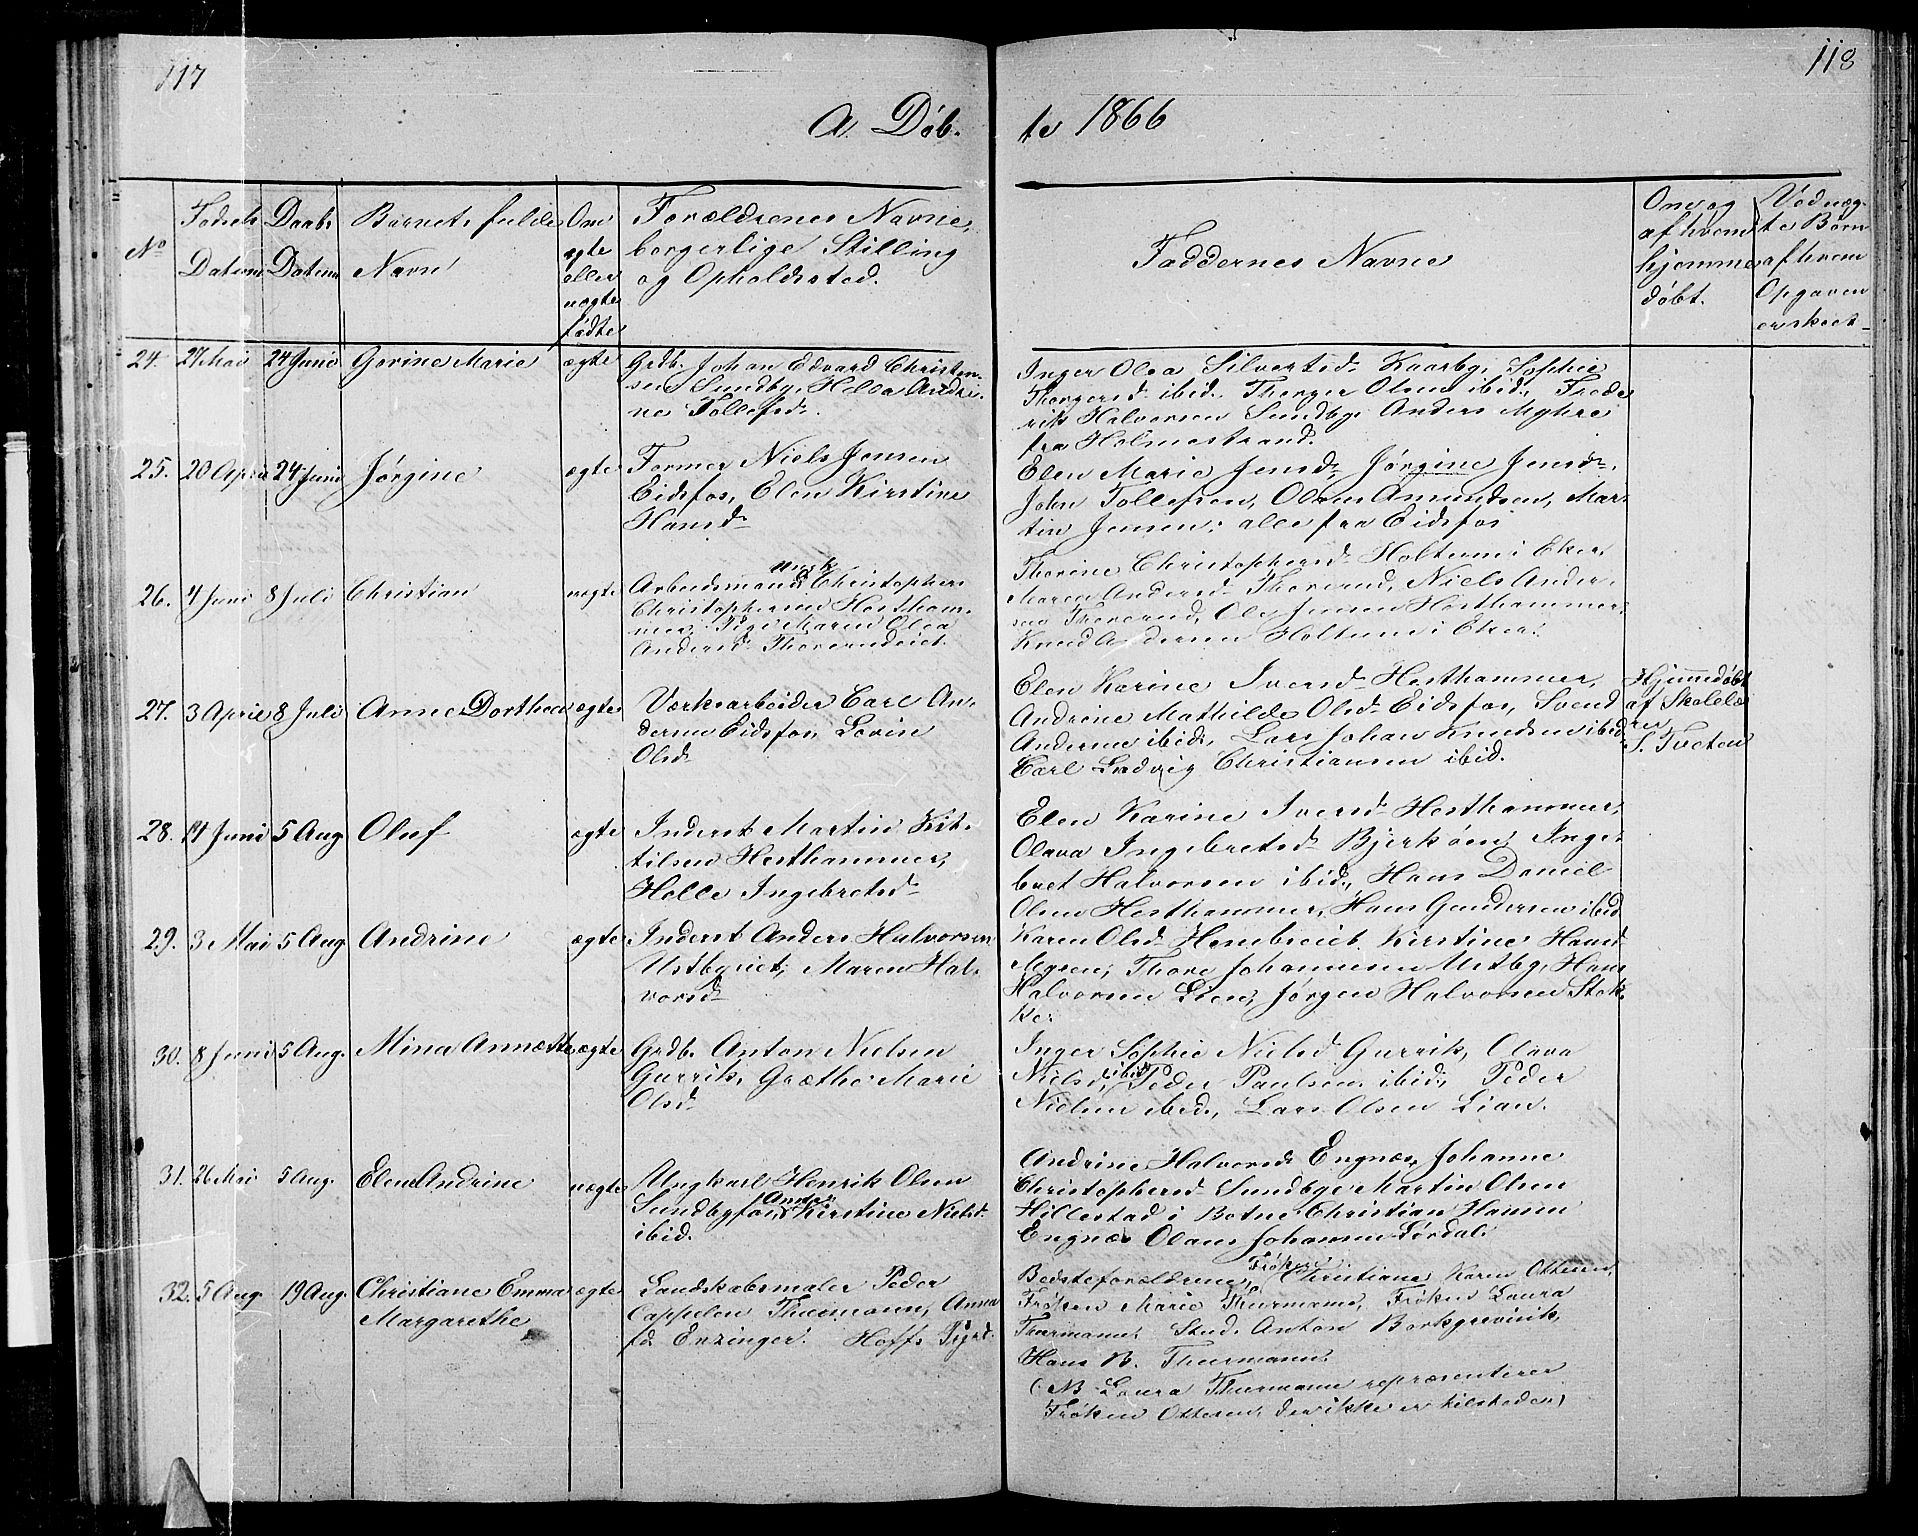 117
118
A. Døb-
te 1866
No
Fødsels Datum
Daabs Datum
Barnets fulde Navn
Om ægte eller uægte fødte
Forældrenes Navne, borgerlige Stilling og Opholdssted.
Faddernes Navne
Om og af hvem hjemmedøbt.
Dødfødte Børn af hvem Opgaven er skeet
24. 27 Mai 24 Juni Gorine Marie ægte Grdb. Johan Edvard Christen-
sen Sundby, Helva Andri-
ne Tollefsd.
Inger Olea Silvertsd. Kaarby, Sophie
Thorgersd. ibid. Thorger Olsen ibid. Frede
rik Halvorsen Sundby, Anders Myhre
fra Holmestrand.
25. 20 April 24 Juni Jørgine ægte Former Niels Jensen
Eidsfos, Elen Kirstine
Hansd.
Elen Marie Jensd. Jørgine Jensd.
John Tollefsen, Olaus Amundsen, Mar-
tin Jensen, alle fra Eidsfos
26. 4 Juni 8 Juli Christian uægte Arbeidsmand Ungk. Christopher
Christophersen Hestham-
mer, Pige Maren Olea
Andersd. Thorerudeiet.
Thorine Christophersd. Holtum i Eker,
Maren Andersd. Thorerud, Niels Ander-
sen Thorerud, Ole Jensen Hesthammer,
Knud Andersen Holtum i Eker.
27. 3 April 8 Juli Anne Dorthea ægte Værksarbeider Carl An-
dersen Eidsfos, Lovin
Olsd.
Elen Karine Iversd. Hesthammer,
Andrine Mathilde Olsd. Eidsfos, Svend
Andersen ibid., Lars Johan Knudsen ibid.
Carl Ludvig Christiansen ibid.
Hjemmedøbt
af Skolelæ
rer
S. Tveten
28. 14 Juni 5 Aug Oluf ægte Inderst Martin Kit-
tilsen Hesthammer,
Helle Ingebretsd.
Elen Karine Iversd. Hesthammer,
Olava Ingebretsd. Bjerkøen, Inge-
bret Halvorsen ibid., Hans Daniel
Olsen Hesthammer, Hans Gundersen ibid
29. 3 Mai 5 Aug Andrine ægte Inderst Anders Halvorsen
Ustbyeiet, Maren Hal-
vorsd.
Karen Olsd. Hembreiet, Kirstine Hansd.
Mysen, Thore Johannesen Ustby, Hans
Halvorsen Lien, Jørgen Halvorsen Stok-
ke.
30. 8 Juni 5 Aug. Mina Annætte ægte Grdb. Anton Nielsen
Gurrik, Græthe Marie
Olsd.
Inger Sophie Nielsd. Gurrik, Olava
Nielsd. ibid Peder Paulsen ibid, Peder
Nielsen ibid., Lars Olsen Lian.
31. 26 Mai 5 Aug. Elen Andrine uægte Ungkarl Henrik Olsen
Sundbyfos, Kirstine Nielsd.
ibid.
Andrine Halvorsd. Engnæs, Johanne
Christophersd. Sundby, Martin Olsen
Hillestad i Botne, Christian Hansen
Engnæs Olaus Johansen Sørdal.
32. 5 Aug. 19 Aug. Christiane Emma
Margarethe ægte Landskabsmaler Peder
Cappelen Thurmann, Anna
fd. Enzinger. Hoffs Pgrd.
Bedsteforældrene, Frøken Christiane Karen Ottesen,
Frøken Marie Thurmann, Frøken Laura
Thurmann, Stud. Anton Borkgrevink,
Hans B. Thurmann.
(NB Laura Thurmann repræsenterer
Frøken Ottesen, der ikke er tilstede.)